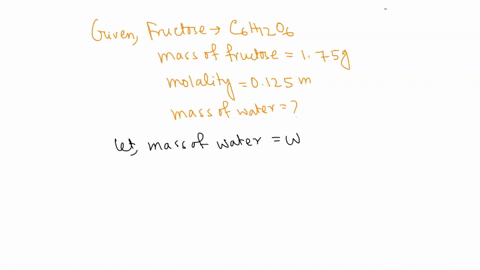 Given, Fructose → C6H12O6
mass of fructose = 1.75g
molality = 0.125 m
mass of water = ?
let, mass of water = W